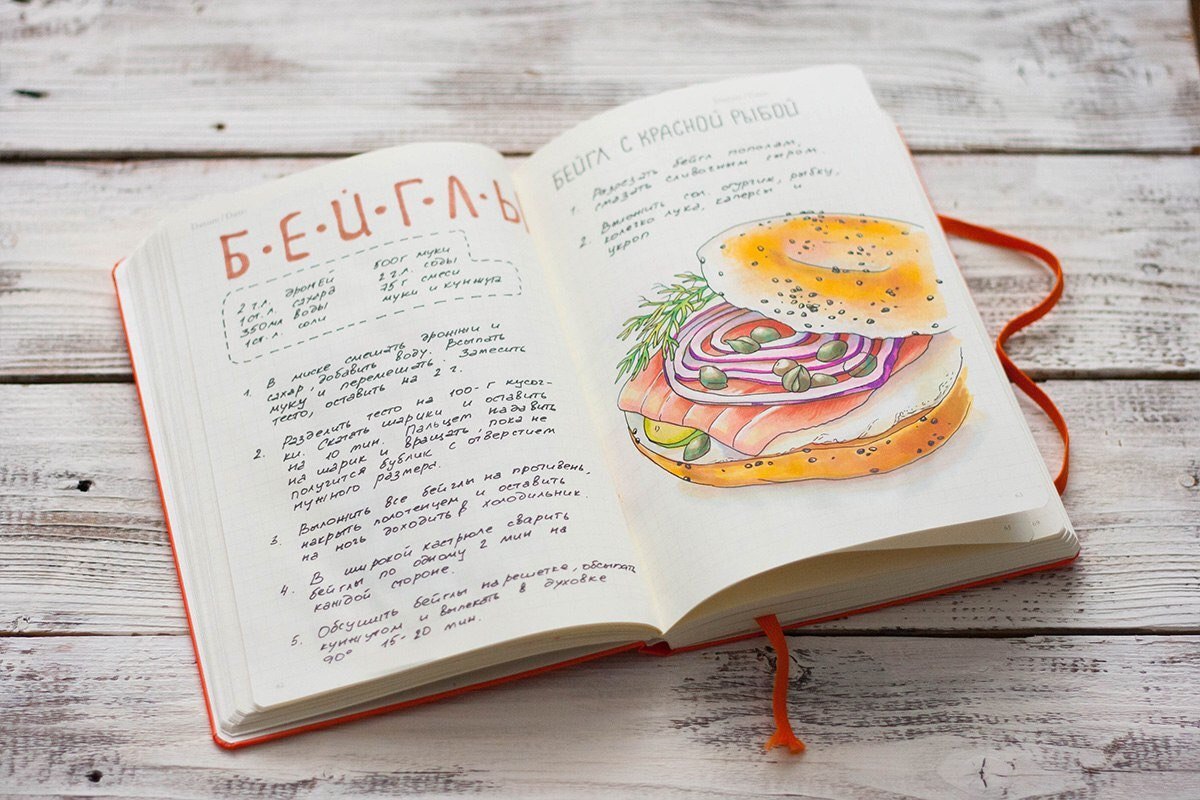 Б·Е·Й·Г·Л·Ы
2 ч.л. дрожей
1 ст.л. сахара
350мл воды
1 ст.л. соли
500г муки
2 ч.л. соды
75 г смеси
муки и кунжута
1. В миске смешать дрожжи и
сахар, добавить воду. Всыпать
муку и перемешать. Замесить
тесто, оставить на 2 г.
2. Разделить тесто на 100-г кусоч-
ки. Скатать шарики и оставить
на 10 мин. Пальцем надавить
на шарик и вращать, пока не
получится бублик с отверстием
нужного размера.
3. Выложить все бейглы на противень,
накрыть полотенцем и оставить
на ночь доходить в холодильник.
4. В широкой кастрюле сварить
бейглы по одному 2 мин на
каждой стороне.
5. Обсушить бейглы на решетке, обсыпать
кунжутом и выпекать в духовке
90° 15-20 мин.
БЕЙГЛ С КРАСНОЙ РЫБОЙ
1. Разрезать бейгл пополам,
смазать сливочным сыром.
2. Выложить сол. огурчик, рыбку,
колечко лука, каперсы и
укроп